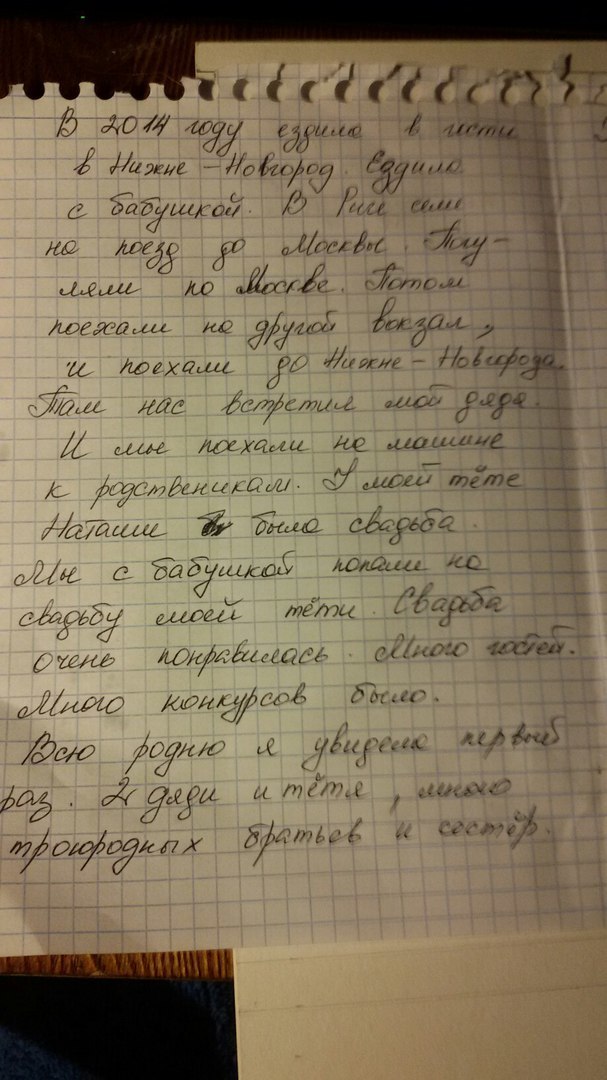 В 2014 году ездила в гости
в Нижне-Новгород. Ездила
с бабушкой. В Риге сели
на поезд до Москвы. Погу-
ляли по Москве. Потом
поехали на другой вокзал,
и поехали до Нижне-Новгорода.
Там нас встретил мой дядя.
И мы поехали на машине
к родственикам. У моей тёте
Наташи была свадьба.
Мы с бабушкой попали на
свадьбу моей тёти. Свадьба
очень понравилась. Много гостей.
Много конкурсов было.
Всю родню я увидела первый
раз. 2 дяди и тётя, много
троюродных братьев и сестёр.